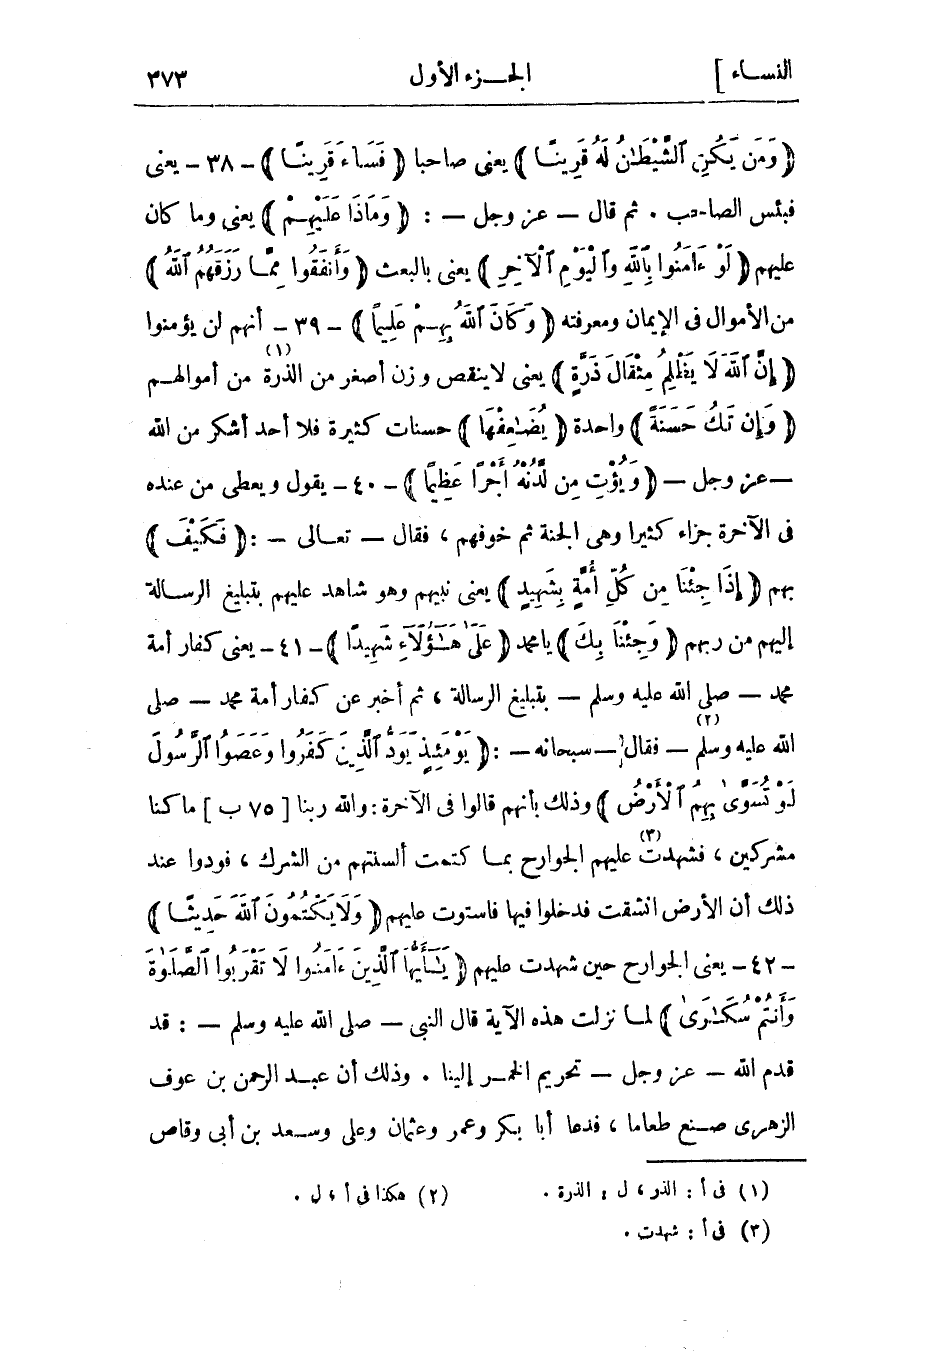 النساء ] الجزء الأول ٣٧٣
﴿ وَمَن يَكُنِ ٱلشَّيْطَـٰنُ لَهُۥ قَرِينًا ﴾ يعنى صاحبا ﴿ فَسَاءَ قَرِينًا ﴾ - ٣٨ - يعنى
فبئس الصاحب . ثم قال — عز وجل — : ﴿ وَمَاذَا عَلَيْهِمْ ﴾ يعنى وما كان
عليهم ﴿ لَوْ ءَامَنُوا بِٱللَّهِ وَٱلْيَوْمِ ٱلْآخِرِ ﴾ يعنى بالبعث ﴿ وَأَنفَقُوا مِمَّا رَزَقَهُمُ ٱللَّهُ ﴾
من الأموال فى الإيمان ومعرفته ﴿ وَكَانَ ٱللَّهُ بِهِمْ عَلِيمًا ﴾ - ٣٩ - أنهم لن يؤمنوا
﴿ إِنَّ ٱللَّهَ لَا يَظْلِمُ مِثْقَالَ ذَرَّةٍ ﴾ يعنى لاينقص وزن أصغر من الذرة (١) من أموالهم
﴿ وَإِن تَكُ حَسَنَةً ﴾ واحدة ﴿ يُضَـٰعِفْهَا ﴾ حسنات كثيرة فلا أحد أشكر من الله
— عز وجل — ﴿ وَيُؤْتِ مِن لَّدُنْهُ أَجْرًا عَظِيمًا ﴾ - ٤٠ - يقول ويعطى من عنده
فى الآخرة جزاء كثيرا وهى الجنة ثم خوفهم ، فقال — تعالى — : ﴿ فَكَيْفَ ﴾
بهم ﴿ إِذَا جِئْنَا مِن كُلِّ أُمَّةٍ بِشَهِيدٍ ﴾ يعنى نبيهم وهو شاهد عليهم بتبليغ الرسالة
إليهم من ربهم ﴿ وَجِئْنَا بِكَ ﴾ يامحمد ﴿ عَلَىٰ هَـٰٓؤُلَآءِ شَهِيدًا ﴾ - ٤١ - يعنى كفار أمة
محمد — صلى الله عليه وسلم — بتبليغ الرسالة ، ثم أخبر عن كفار أمة محمد — صلى
الله عليه وسلم (٢) — فقال — سبحانه — : ﴿ يَوْمَئِذٍ يَوَدُّ ٱلَّذِينَ كَفَرُوا وَعَصَوُا ٱلرَّسُولَ
لَوْ تُسَوَّىٰ بِهِمُ ٱلْأَرْضُ ﴾ وذلك بأنهم قالوا فى الآخرة : والله ربنا [ ٧٥ ب ] ماكنا
مشركين ، فشهدت (٣) عليهم الجوارح بما كتمت ألسنتهم من الشرك ، فودوا عند
ذلك أن الأرض انشقت فدخلوا فيها فاستوت عليهم ﴿ وَلَا يَكْتُمُونَ ٱللَّهَ حَدِيثًا ﴾
- ٤٢ - يعنى الجوارح حين شهدت عليهم ﴿ يَـٰٓأَيُّهَا ٱلَّذِينَ ءَامَنُوا لَا تَقْرَبُوا ٱلصَّلَوٰةَ
وَأَنتُمْ سُكَـٰرَىٰ ﴾ لما نزلت هذه الآية قال النبى — صلى الله عليه وسلم — : قد
قدم الله — عز وجل — تحريم الخمر إلينا . وذلك أن عبد الرحمن بن عوف
الزهرى صنع طعاما ، فدعا أبا بكر وعمر وعثمان وعلى وسعد بن أبى وقاص
(١) فى أ : الذر ، ل : الذرة . (٢) هكذا فى أ ، ل .
(٣) فى أ : شهدت .